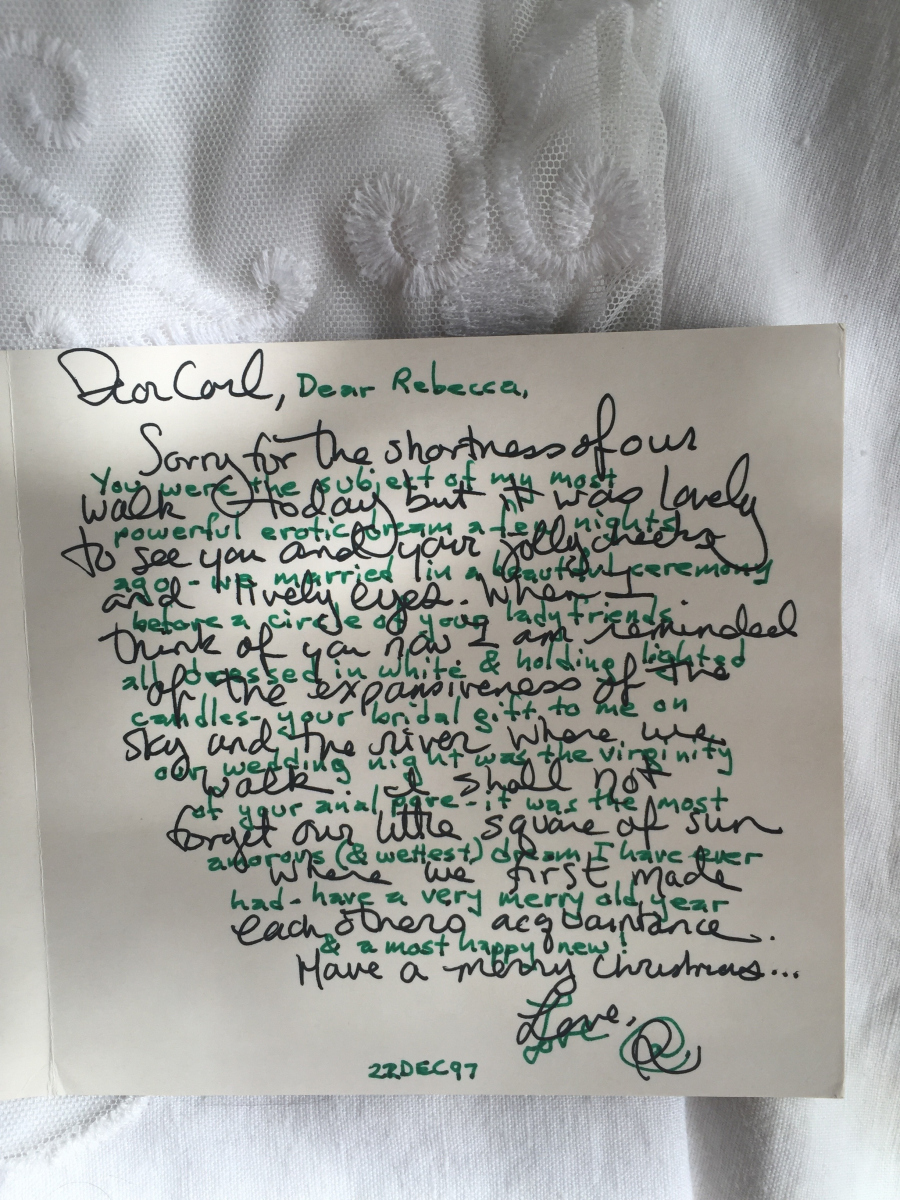 Dear Carl, Dear Rebecca,
Sorry for the shortness of our
You were the subject of my most
walk today but it was lovely
powerful erotic dream a few nights
to see you and your jolly cheeks
ago - we married in a beautiful ceremony
and lively eyes. When I
before a circle of your ladyfriends
think of you now I am reminded
all dressed in white & holding lighted
of the expansiveness of the
candles - your bridal gift to me on
sky and the river where we
our wedding night was the virginity
walk. I shall not
of your anal pore - it was the most
forget our little square of sun
amorous (& wettest) dream I have ever
where we first made
had - have a very merry old year
each others acquaintance.
& a most happy new!
Have a merry Christmas...
Love,
Love
R
22DEC97